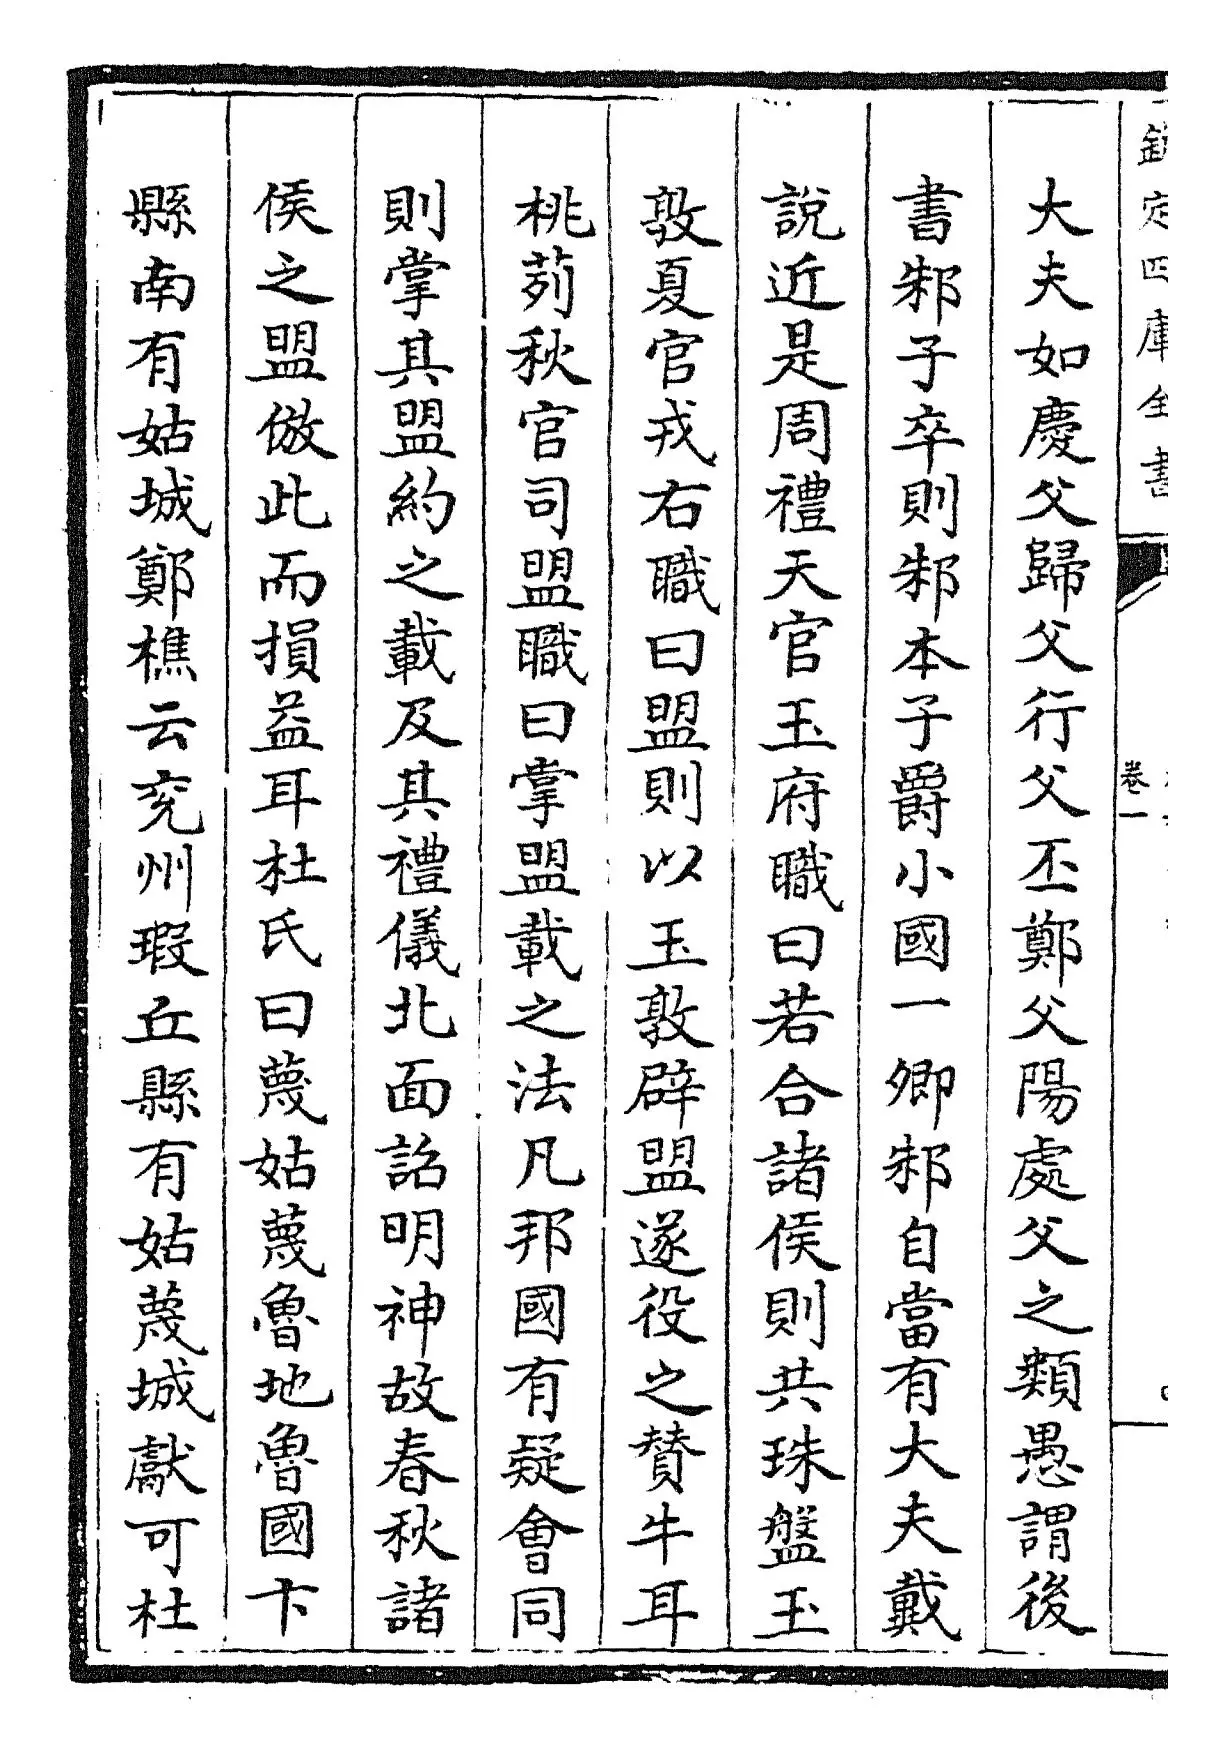 欽定四庫全書
卷一
大夫如慶父歸父行父丕鄭父陽處父之類愚謂後
書邾子卒則邾本子爵小國一卿邾自當有大夫戴
說近是周禮天官玉府職曰若合諸侯則共珠盤玉
敦夏官戎右職曰盟則以玉敦辟盟遂役之贊牛耳
桃茢秋官司盟職曰掌盟載之法凡邦國有疑會同
則掌其盟約之載及其禮儀北面詔明神故春秋諸
侯之盟倣此而損益耳杜氏曰蔑姑蔑魯地魯國卞
縣南有姑城鄭樵云兖州瑕丘縣有姑蔑城獻可杜